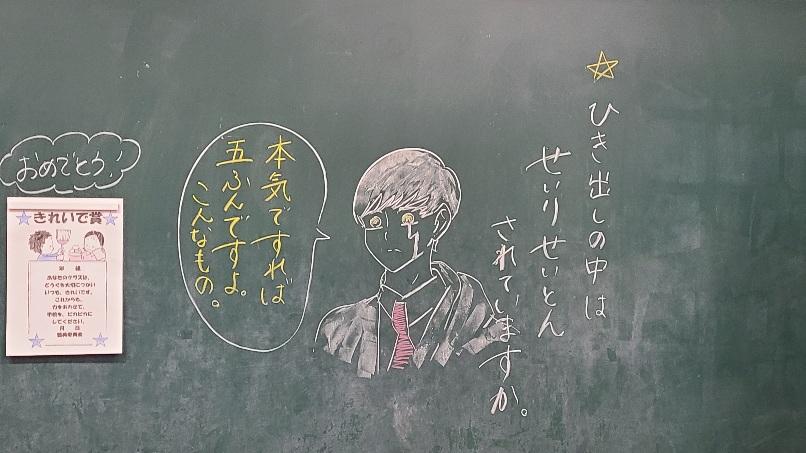 ☆ひき出しの中は
せいりせいとん
されていますか。
本気ですれば
五ふんですよ。
こんなもの。
おめでとう!
きれいで賞
年 組
あなたのクラスは、
どうぐを大切につかい
いつも、きれいです。
これからも、
力をあわせて、
学校を、ピカピカに
してください。
月 日